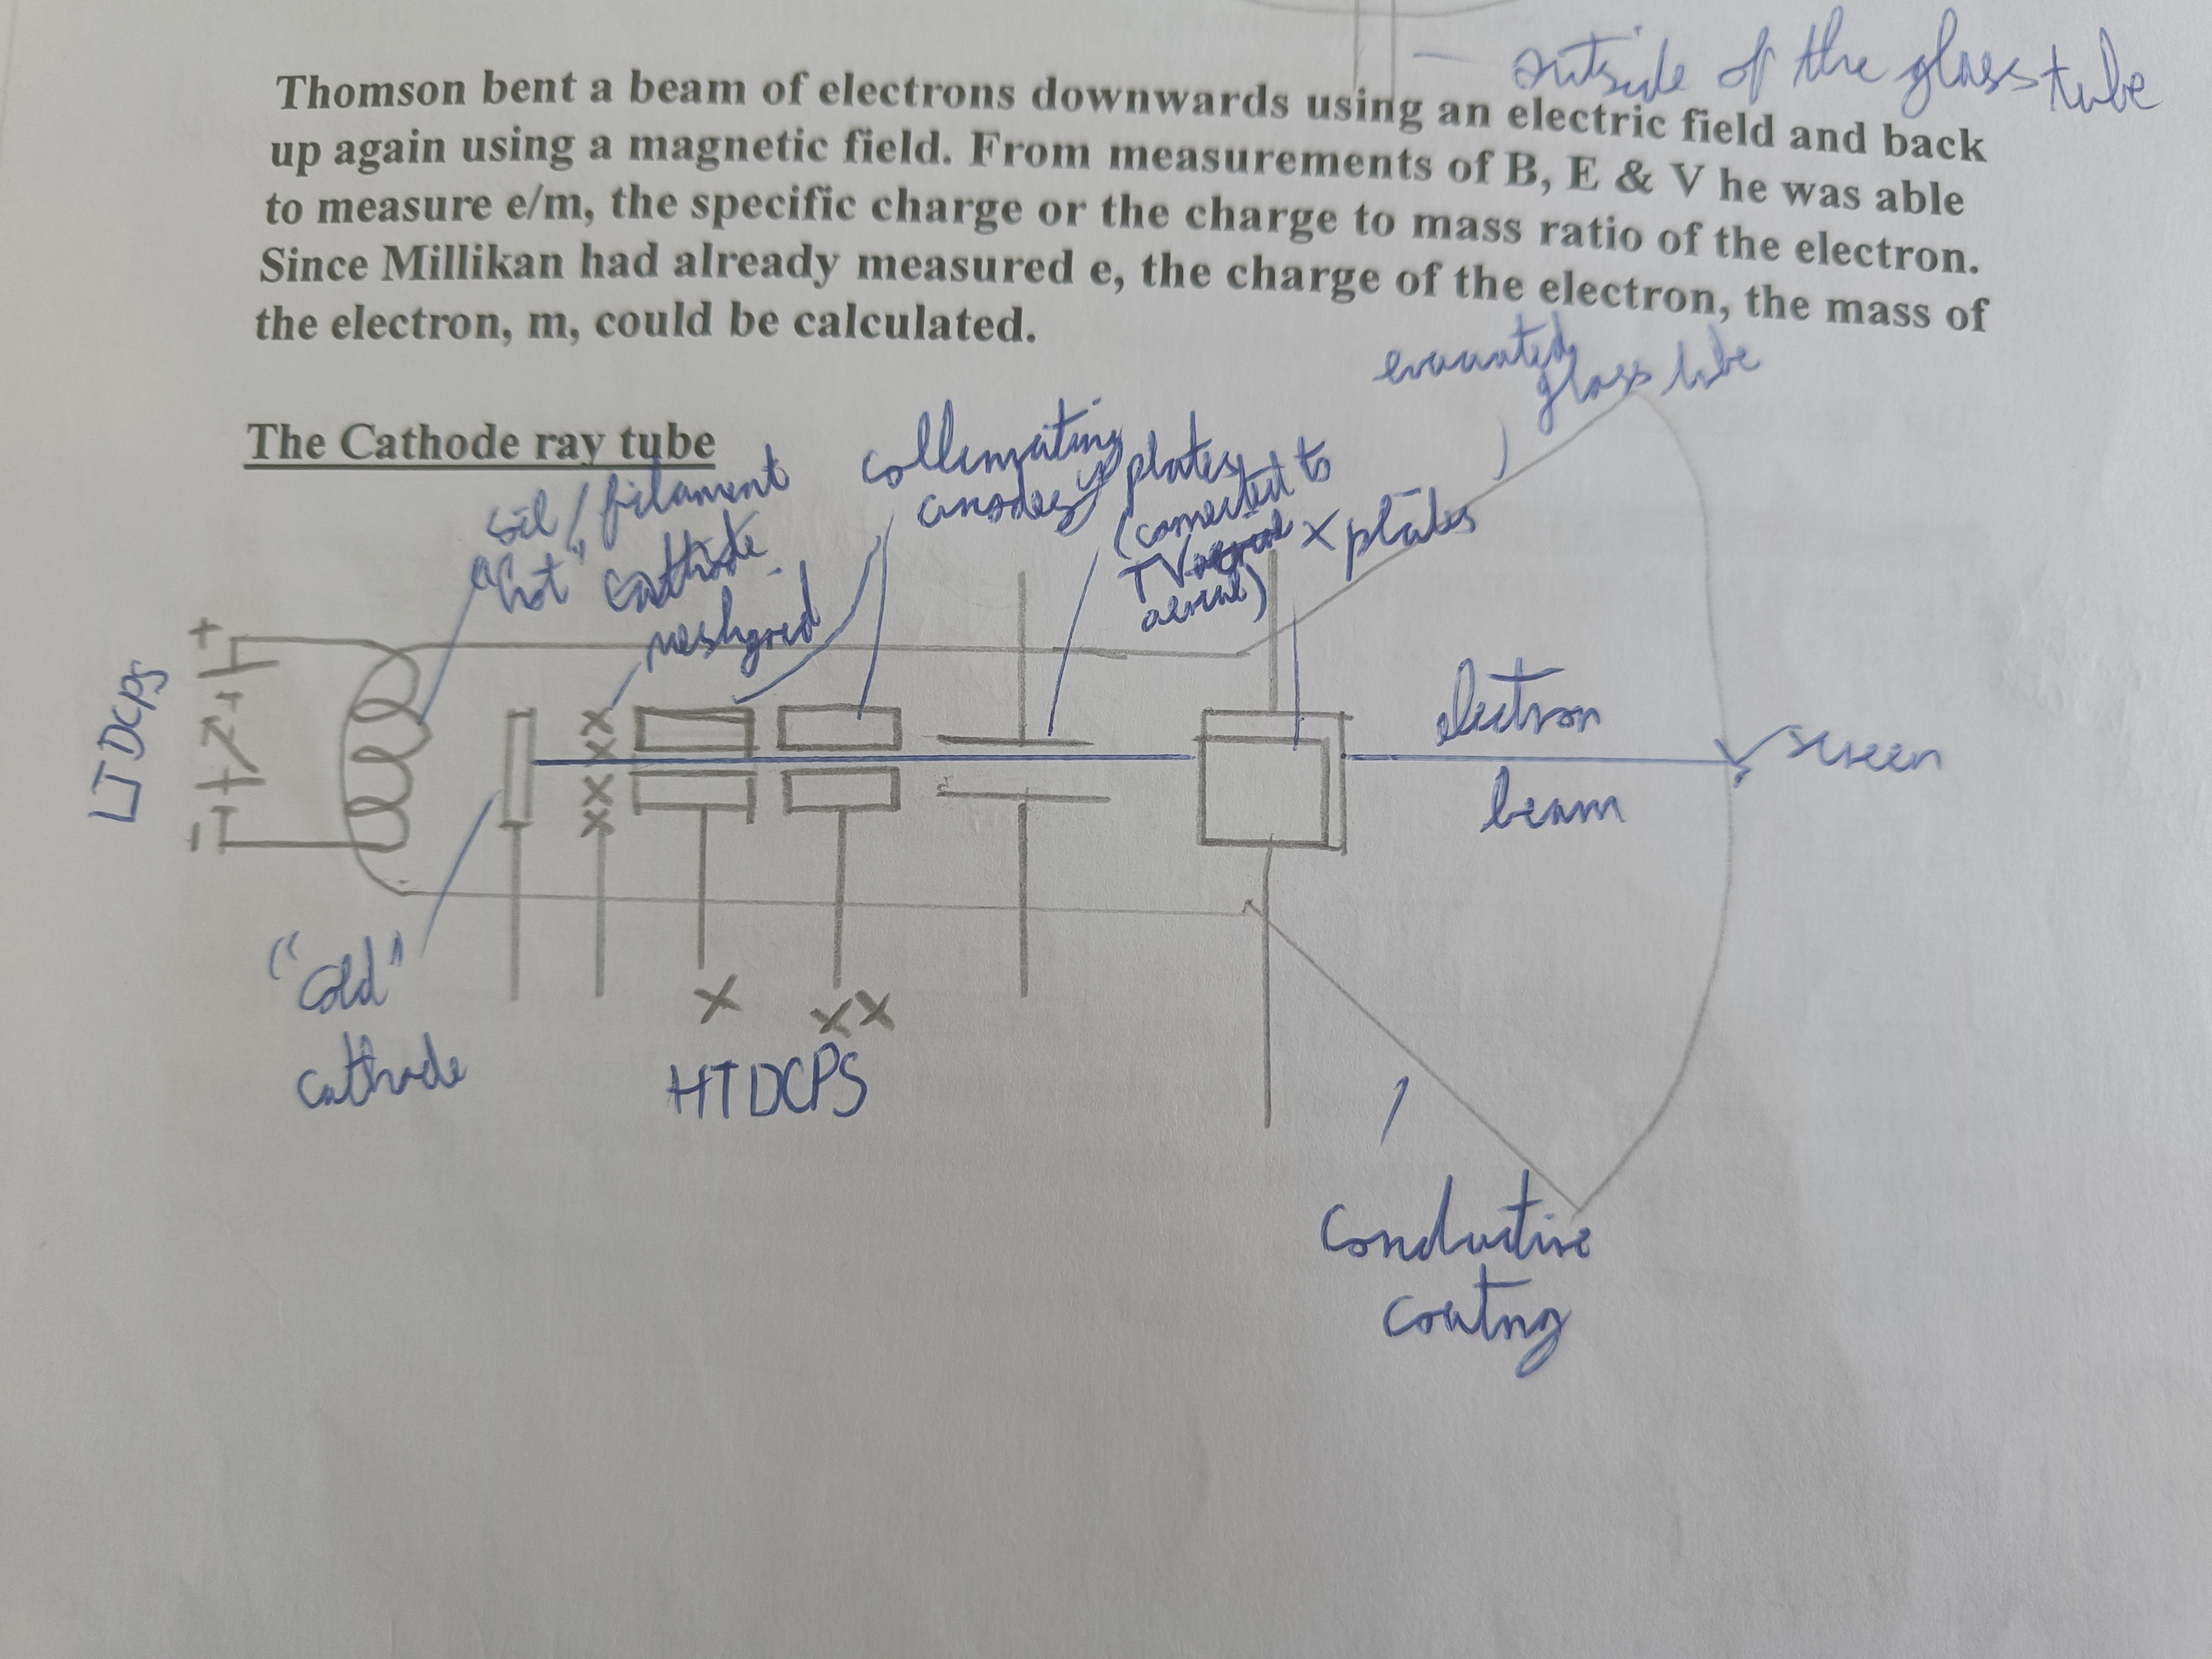 — outside of the glass tube
Thomson bent a beam of electrons downwards using an electric field and back
up again using a magnetic field. From measurements of B, E & V he was able
to measure e/m, the specific charge or the charge to mass ratio of the electron.
Since Millikan had already measured e, the charge of the electron, the mass of
the electron, m, could be calculated.
evacuated
glass tube
The Cathode ray tube
coil / filament
"hot" cathode
meshgrid
collimating
anodes
y plates
(connected to
TV
aerial)
X plates
+
LTDCPS
+
+
−
electron
beam
screen
X
X
X
X
"cold"
cathode
X
XX
HTDCPS
Conductive
coatng